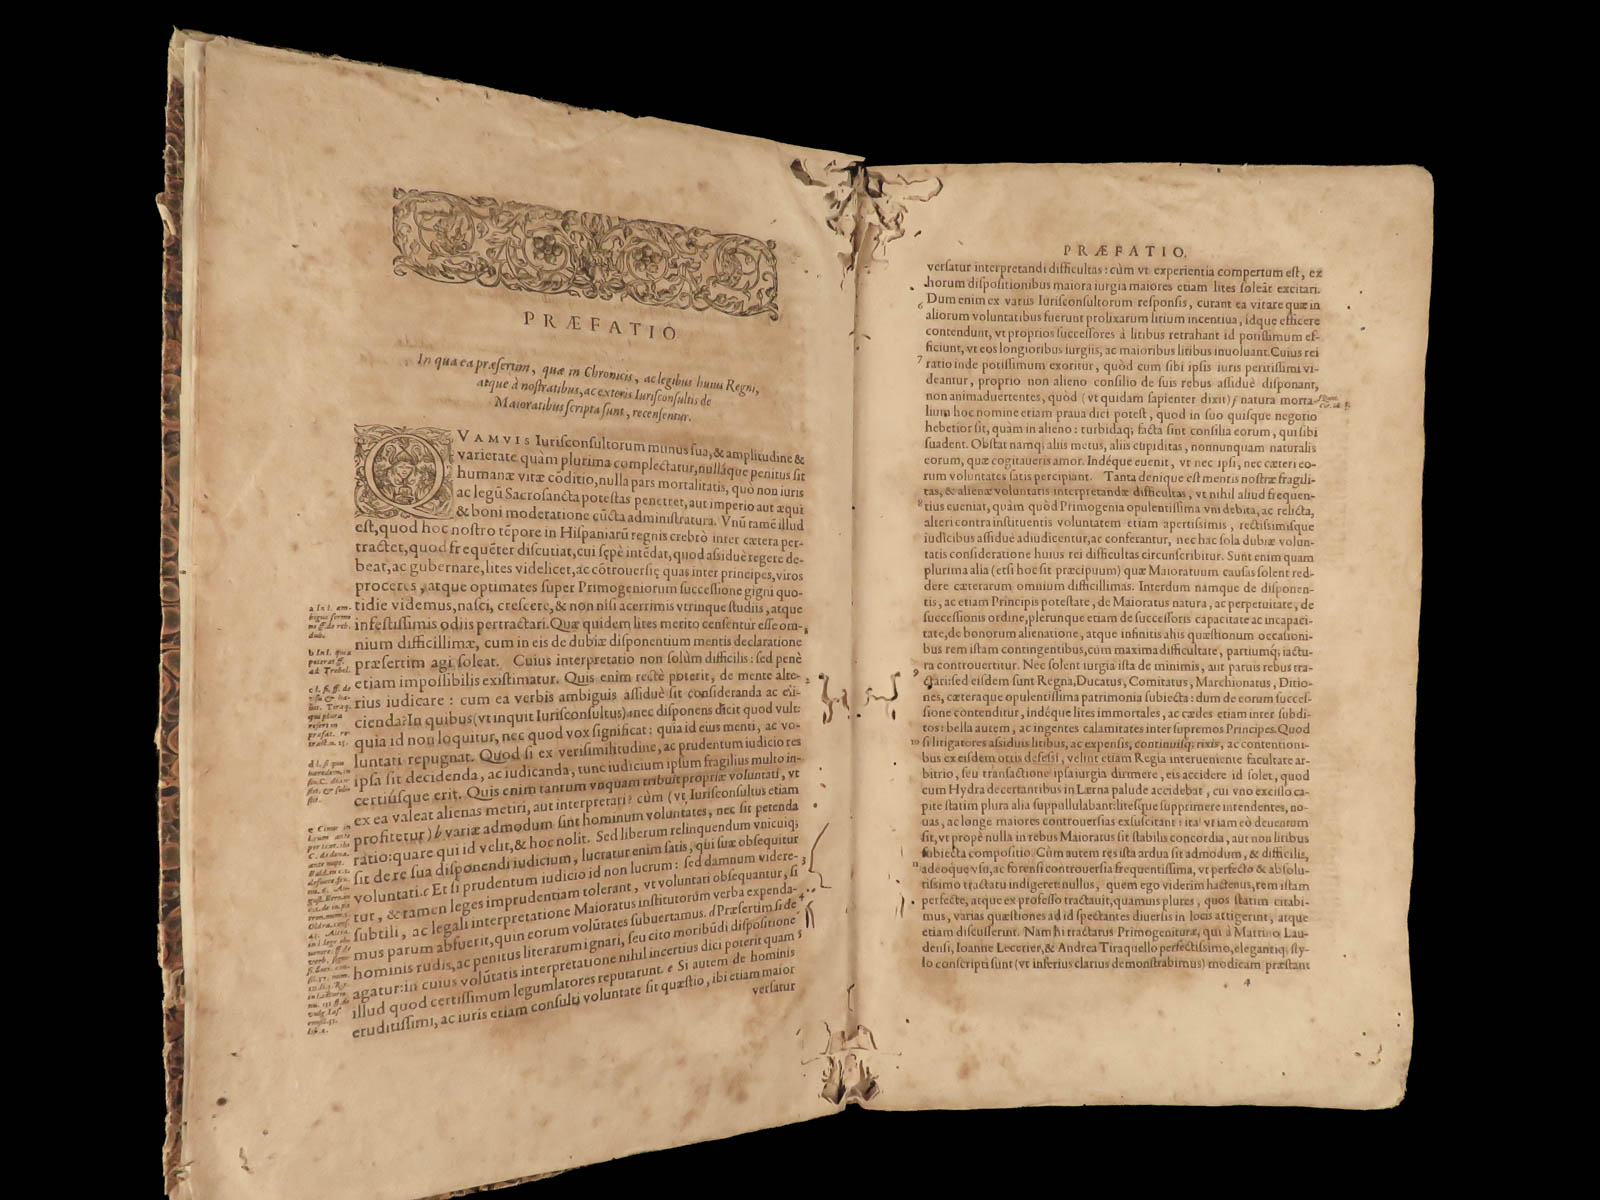 PRÆFATIO
In qua ea præsertim, quæ in Chronicis, ac legibus huius Regni,
atque à nostratibus, ac exteris Iurisconsultis de
Maioratibus scripta sunt, recensentur.
QVAMVIS Iurisconsultorum munus sua, & amplitudine &
varietate quàm plurima complectatur, nulláque penitus sit
humanæ vitæ cõditio, nulla pars mortalitatis, quò non iuris
ac legũ Sacrosancta potestas penetret, aut imperio aut æqui
& boni moderatione cũcta administratura. Vnũ tamẽ illud
est, quod hoc nostro tẽpore in Hispaniarũ regnis crebrò inter cætera per-
tractet, quod frequẽter discutiat, cui sępè intẽdat, quod assiduè regere de-
beat, ac gubernare, lites videlicet, ac cõtrouersię quas inter principes, viros
proceres, atque optimates super Primogeniorum successione gigni quo-
tidie videmus, nasci, crescere, & non nisi acerrimis vtrinque studiis, atque
infestissimis odiis pertractari. Quæ quidem lites merito censentur esse om-
nium difficillimæ, cum in eis de dubiæ disponentium mentis declaratione
præsertim agi soleat. Cuius interpretatio non solùm difficilis: sed penè
etiam impossibilis existimatur. Quis enim rectè poterit, de mente alte-
rius iudicare: cum ea verbis ambiguis assiduè sit consideranda ac eii-
cienda? In quibus (vt inquit Iurisconsultus) a nec disponens dicit quod vult:
quia id non loquitur, nec quod vox significat: quia id eius menti, ac vo-
luntati repugnat. Quod si ex verisimilitudine, ac prudentum iudicio res
ipsa sit decidenda, ac iudicanda, tunc iudicium ipsum fragilius multo in-
certiúsque erit. Quis enim tantum vnquam tribuit propriæ voluntati, vt
ex ea valeat alienas metiri, aut interpretari? cùm (vt Iurisconsultus etiam
profitetur) b variæ admodum sint hominum voluntates, nec sit petenda
ratio: quare qui id velit, & hoc nolit. Sed liberum relinquendum vnicuiq;
sit de re sua disponendi iudicium, lucratur enim satis, qui suæ obsequitur
voluntati. c Et si prudentum iudicio id non lucrum: sed damnum videre-
tur, & tamen leges imprudentiam tolerant, vt voluntati obsequantur, si
subtili, ac legali interpretatione Maioratus institutorum verba expenda-
mus parum abfuerit, quin eorum volũtates subuertamus. d Præsertim si de
hominis rudis, ac penitus literarum ignari, seu cito moribũdi dispositione
agatur: in cuius volũtatis interpretatione nihil incertius dici poterit quam
illud quod certissimum legumlatores reputarunt. e Si autem de hominis
eruditissimi, ac iuris etiam consulti voluntate sit quæstio, ibi etiam maior
versatur
PRÆFATIO.
versatur interpretandi difficultas: cùm vt experientia compertum est, ex
horum dispositionibus maiora iurgia maiores etiam lites soleãt excitari.
6 Dum enim ex variis Iurisconsultorum responsis, curant ea vitare quæ in
aliorum voluntatibus fuerunt prolixarum litium incentiua, idque efficere
contendunt, vt proprios successores à litibus retrahant id potissimum ef-
ficiunt, vt eos longioribus iurgiis, ac maioribus litibus inuoluant. Cuius rei
7 ratio inde potissimum exoritur, quòd cum sibi ipsis iuris peritissimi vi-
deantur, proprio non alieno consilio de suis rebus assiduè disponant,
non animaduertentes, quòd (vt quidam sapienter dixit) f natura morta-
lium hoc nomine etiam praua dici potest, quod in suo quisque negotio
hebetior sit, quàm in alieno: turbidaq; facta sint consilia eorum, qui sibi
suadent. Obstat namq; aliis metus, aliis cupiditas, nonnunquam naturalis
eorum, quæ cogitaueris amor. Indéque euenit, vt nec ipsi, nec cæteri eo-
rum voluntates satis percipiant. Tanta denique est mentis nostræ fragili-
tas, & alienæ voluntatis interpretandæ difficultas, vt nihil aliud frequen-
8 tius eueniat, quàm quòd Primogenia opulentissima vni debita, ac relicta,
alteri contra instituentis voluntatem etiam apertissimis, rectissimisque
iudicibus assiduè adiudicentur, ac conferantur, nec hac sola dubiæ volun-
tatis consideratione huius rei difficultas circunscribitur. Sunt enim quam
plurima alia (etsi hoc sit præcipuum) quæ Maioratuum causas solent red-
dere cæterarum omnium difficillimas. Interdum námque de disponen-
tis, ac etiam Principis potestate, de Maioratus natura, ac perpetuitate, de
successionis ordine, plerunque etiam de successoris capacitate ac incapaci-
tate, de bonorum alienatione, atque infinitis ahis quæstionum occasioni-
bus rem istam contingentibus, cùm maxima difficultate, partiumq; iactu-
ra controuertitur. Nec solent iurgia ista de minimis, aut paruis rebus tra-
9 ctari: sed eisdem sunt Regna, Ducatus, Comitatus, Marchionatus, Ditio-
nes, cæteraque opulentissima patrimonia subiecta: dum de eorum succes-
sione contenditur, indéque lites immortales, ac cædes etiam inter subdi-
tos: bella autem, ac ingentes calamitates inter supremos Principes. Quod
10 si litigatores assiduis litibus, ac expensis, continuisq; rixis, ac contention-
bus ex eisdem ortis defessi, velint etiam Regia interueniente facultate ar-
bitrio, seu transactione ipsa iurgia dirimere, eis accidere id solet, quod
cum Hydra decertantibus in Lærna palude accidebat, cui vno exciso ca-
pite statim plura alia suppullulabant: litesque supprimere intendentes, no-
uas, ac longe maiores controuersias exsuscitant: ita vt iam eò deuentum
sit, vt propè nulla in rebus Maioratus sit stabilis concordia, aut non litibus
subiecta compositio. Cùm autem res ista ardua sit admodum, & difficilis,
11 adeoque vsu, ac forensi controuersia frequentissima, vt perfecto & absolu-
tissimo tractatu indigeret: nullus, quem ego viderim hactenus, rem istam
perfecte, atque ex professo tractauit, quamuis plures, quos statim citabi-
mus, varias quæstiones ad id spectantes diuersis in locis attigerint, atque
etiam discusserint. Nam hi tractatus Primogenituræ, qui à Martino Lau-
densi, Ioanne Lecerier, & Andrea Tiraquello perfectissimo, elegantiq; sty-
lo conscripti sunt (vt inferius clarius demonstrabimus) modicam præstant
4